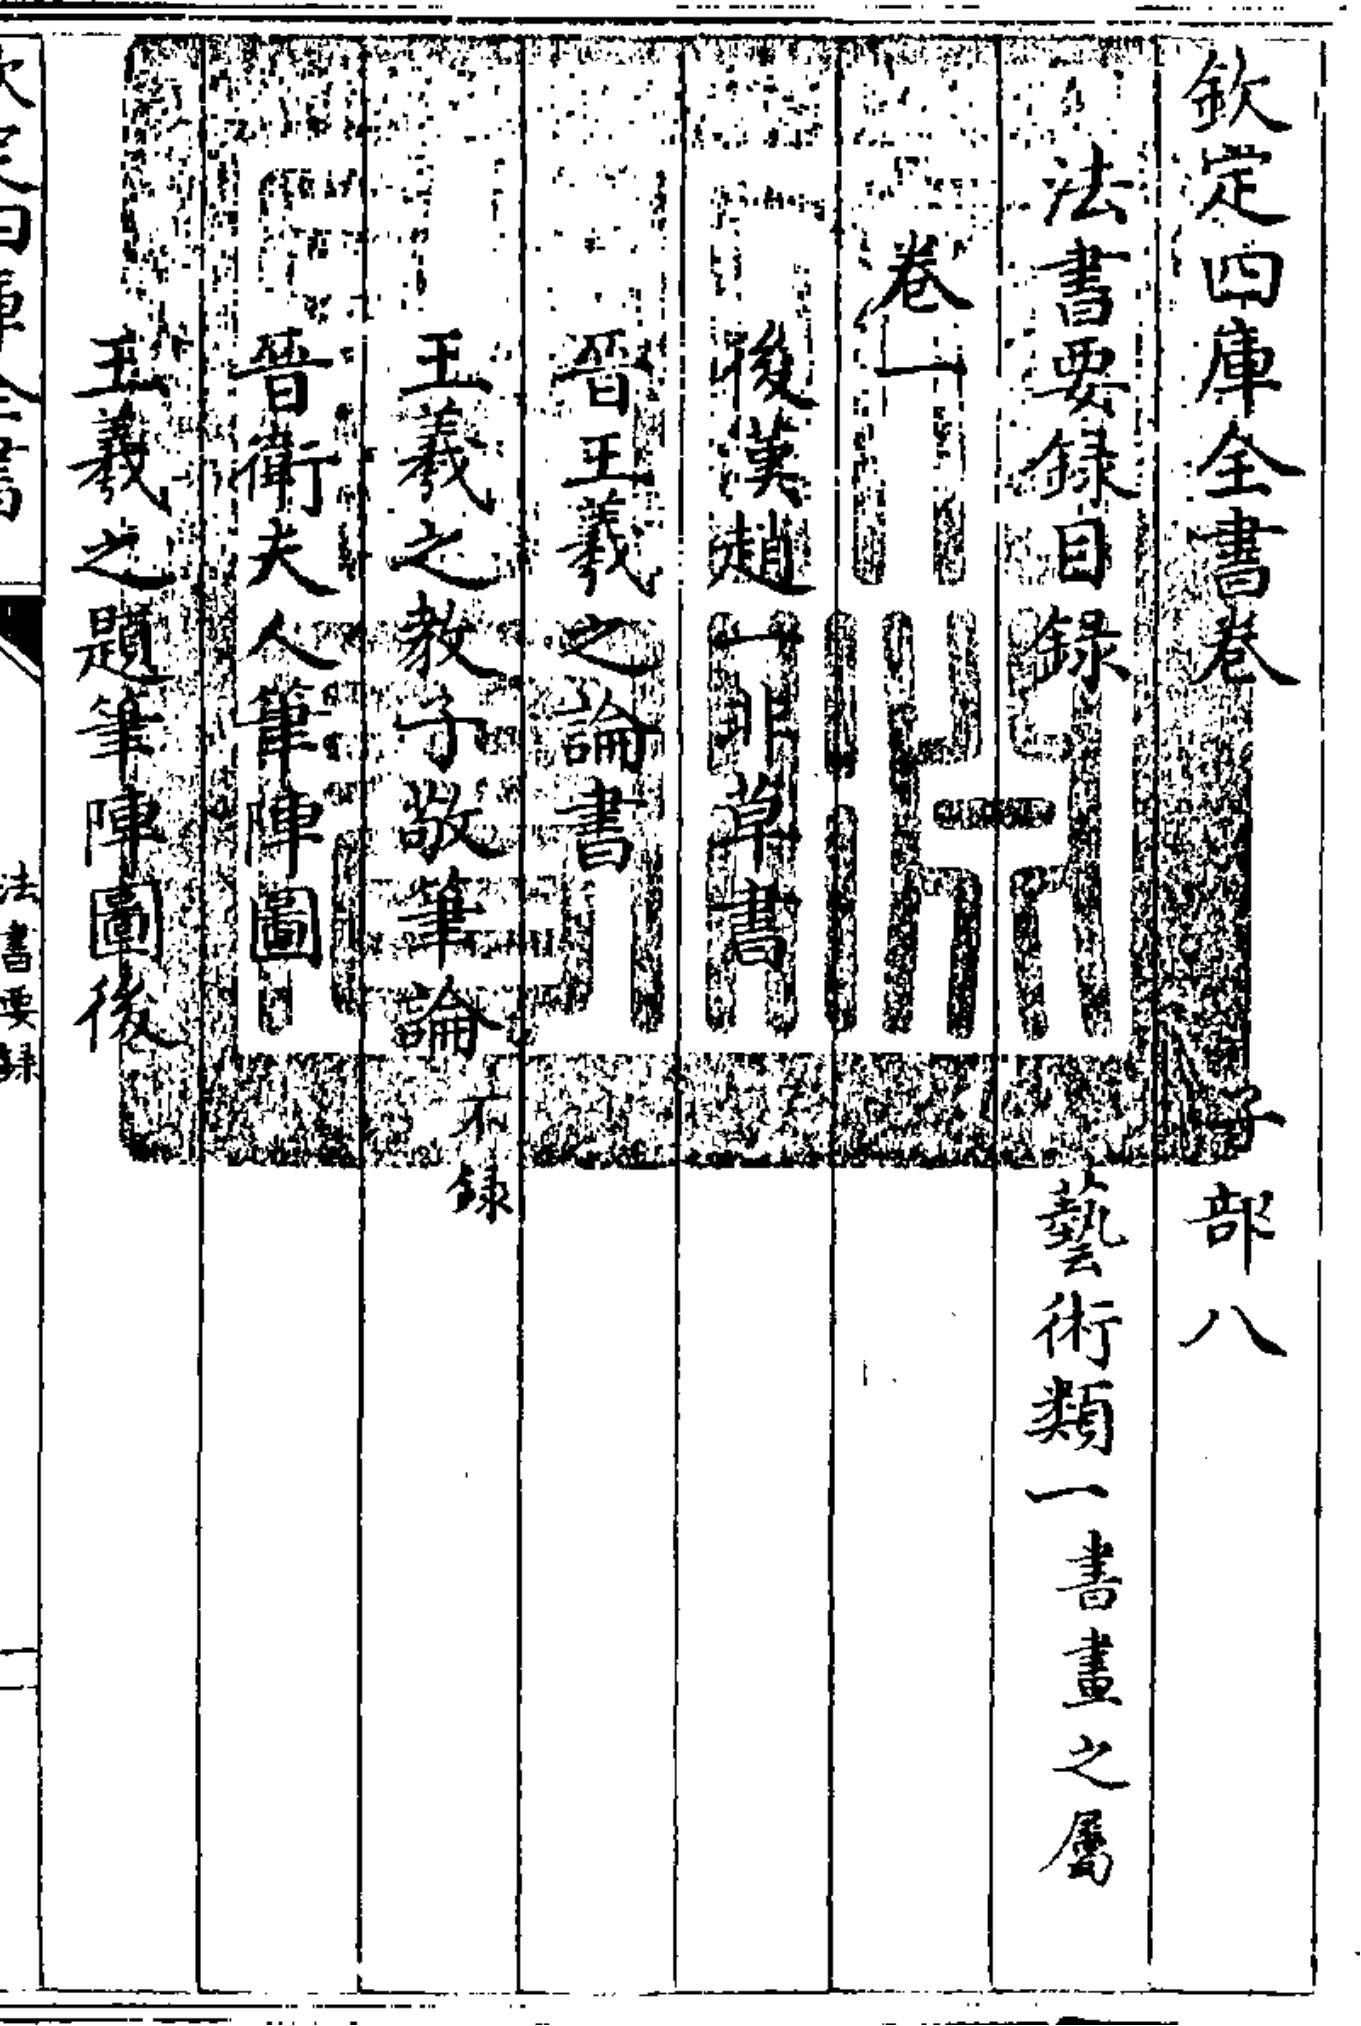 欽定四庫全書卷 子部八
法書要録目録 藝術類一書畫之屬
卷一
後漢趙一非草書
晉王羲之論書
王羲之教子敬筆論不録
晉衛夫人筆陣圖
王羲之題筆陣圖後
欽定四庫全書 法書要録 一